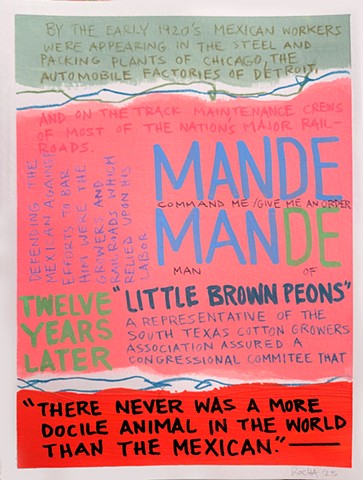 BY THE EARLY 1920'S MEXICAN WORKERS
WERE APPEARING IN THE STEEL AND
PACKING PLANTS OF CHICAGO, THE
AUTOMOBILE FACTORIES OF DETROIT,
AND ON THE TRACK MAINTENANCE CREWS
OF MOST OF THE NATION'S MAJOR RAIL-
ROADS.
DEFENDING THE
MEXICAN AGAINST
EFFORTS TO BAR
HIM WERE THE
GROWERS AND
RAILROADS WHICH
RELIED UPON HIS
LABOR
MANDE
COMMAND ME / GIVE ME AN ORDER
MANDE
MAN OF
TWELVE
YEARS
LATER
"LITTLE BROWN PEONS"
A REPRESENTATIVE OF THE
SOUTH TEXAS COTTON GROWERS
ASSOCIATION ASSURED A
CONGRESSIONAL COMMITEE THAT
"THERE NEVER WAS A MORE
DOCILE ANIMAL IN THE WORLD
THAN THE MEXICAN."
ROCHA '25